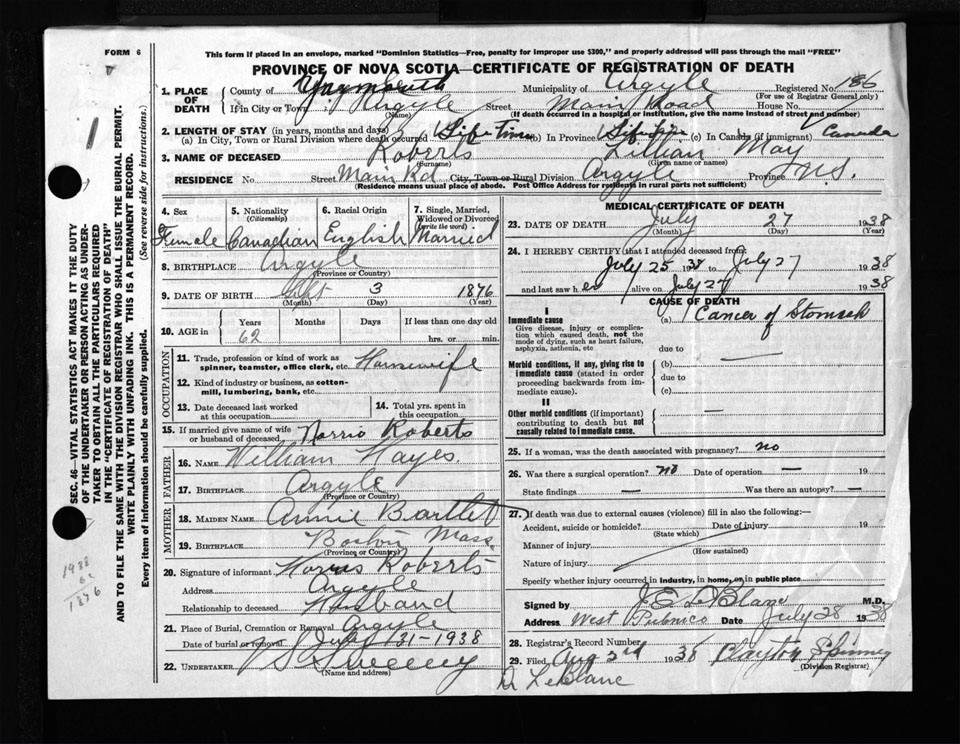 FORM 6
This form if placed in an envelope, marked "Dominion Statistics—Free, penalty for improper use $300," and properly addressed will pass through the mail "FREE"
PROVINCE OF NOVA SCOTIA—CERTIFICATE OF REGISTRATION OF DEATH
1. PLACE OF DEATH
County of Yarmouth Municipality of Argyle Registered No.
(For use of Registrar General only)
If in City or Town Argyle Street Main Road House No.
(Name) (If death occurred in a hospital or institution, give its name instead of street and number)
2. LENGTH OF STAY (in years, months and days)
(a) In City, Town or Rural Division where death occurred Life Time (b) In Province Life Time (c) In Canada (if immigrant) Canada
3. NAME OF DECEASED Roberts Lillian May
(Surname) (Given name or names)
RESIDENCE No. Street Main Rd City, Town or Rural Division Argyle Province N.S.
(Residence means usual place of abode. Post Office Address for residents in rural parts not sufficient)
4. Sex
Female
5. Nationality
(Citizenship)
Canadian
6. Racial Origin
English
7. Single, Married, Widowed or Divorced
(write the word)
Married
8. BIRTHPLACE Argyle
(Province or Country)
9. DATE OF BIRTH Sept 3 1876
(Month) (Day) (Year)
10. AGE in Years Months Days If less than one day
62 hrs. or min.
OCCUPATION
11. Trade, profession or kind of work as spinner, teamster, office clerk, etc. Housewife
12. Kind of industry or business, as cotton-mill, lumbering, bank, etc.
13. Date deceased last worked at this occupation
14. Total yrs. spent in this occupation
15. If married give name of wife or husband of deceased Norris Roberts
FATHER
16. NAME William Hayes.
17. BIRTHPLACE Argyle
(Province or Country)
MOTHER
18. MAIDEN NAME Annie Bartlet
19. BIRTHPLACE Boston Mass.
(Province or Country)
20. Signature of informant Norris Roberts
Address Argyle
Relationship to deceased Husband
21. Place of Burial, Cremation or Removal Argyle
Date of burial or removal July 31-1938
22. UNDERTAKER V S Sweeney
(Name and address)
MEDICAL CERTIFICATE OF DEATH
23. DATE OF DEATH July 27 1938
(Month) (Day) (Year)
24. I HEREBY CERTIFY that I attended deceased from
July 25 1938 to July 27 1938
and last saw her alive on July 27 1938
CAUSE OF DEATH
I
Immediate cause
Give disease, injury or complication which caused death, not the mode of dying, such as heart failure, asphyxia, asthenia, etc
(a) Cancer of Stomach
due to —
Morbid conditions, if any, giving rise to immediate cause (stated in order proceeding backwards from immediate cause).
(b)
due to
(c)
II
Other morbid conditions (if important) contributing to death but not causally related to immediate cause.
—
25. If a woman, was the death associated with pregnancy? no
26. Was there a surgical operation? no Date of operation — 19
State findings — Was there an autopsy? —
27. If death was due to external causes (violence) fill in also the following:—
Accident, suicide or homicide? Date of injury 19
(State which)
Manner of injury
(How sustained)
Nature of injury
Specify whether injury occurred in industry, in home, or in public place
Signed by J E LeBlanc M.D.
Address West Pubnico Date July 28 1938
28. Registrar's Record Number
29. Filed Aug 2nd 1938 Clayton Spinney
(Division Registrar)
D LeBlanc
SEC. 46—VITAL STATISTICS ACT MAKES IT THE DUTY OF THE UNDERTAKER OR PERSON ACTING AS UNDERTAKER TO OBTAIN ALL THE PARTICULARS REQUIRED IN THE "CERTIFICATE OF REGISTRATION OF DEATH" AND TO FILE THE SAME WITH THE DIVISION REGISTRAR WHO SHALL ISSUE THE BURIAL PERMIT.
WRITE PLAINLY WITH UNFADING INK. THIS IS A PERMANENT RECORD.
Every item of information should be carefully supplied. (See reverse side for instructions.)
1938
62
1876